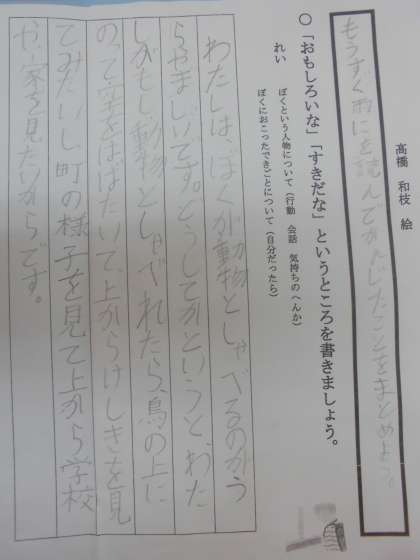 高橋 和枝 絵
もうすぐ雨にを読んでかんじたことをまとめよう。
○「おもしろいな」「すきだな」というところを書きましょう。
れい
ぼくという人物について(行動 会話 気持ちのへんか)
ぼくにおこったできごとについて(自分だったら)
わたしは、ぼくが動物としゃべるのがう
らやましいです。どうしてかというと、わた
しがもし動物としゃべれたら、鳥の上に
のって空をはばたいて、上からけしきを見
てみたいし、町の様子を見て上から学校
や、家を見たいからです。